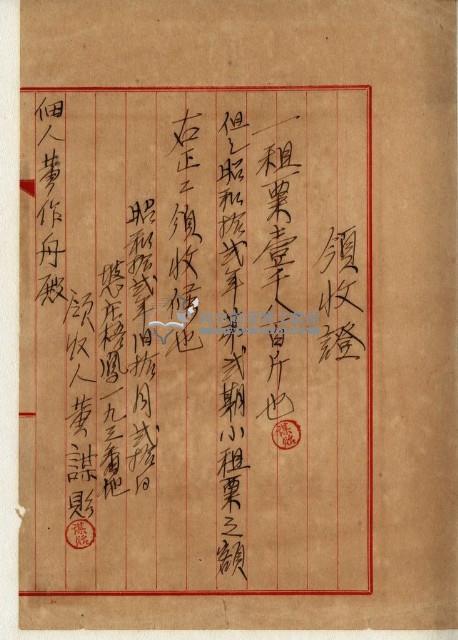 領收證
一租粟壹千八百斤也
但シ昭和拾貳年第貳期小租粟之額
右正ニ領收候也
昭和拾貳年旧拾月貳拾日
梧鳳一九三番地
領收人黃謀賜
佃人黃作舟殿